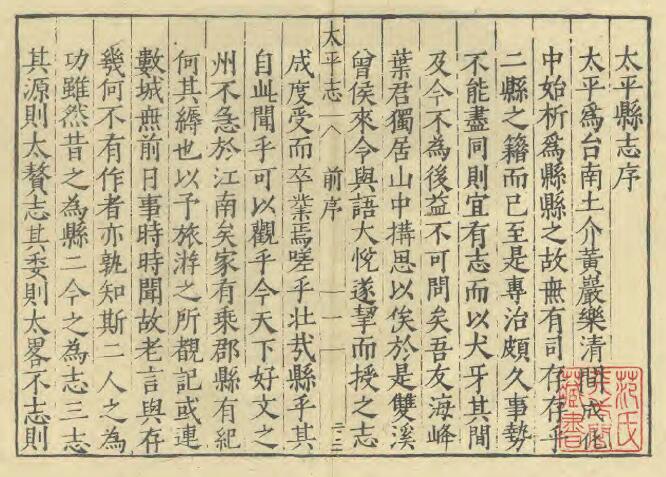 太平縣志序
太平爲台南土介黃巖樂清間成化
中始析爲縣縣之故無有司存存乎
二縣之籍而已至是專治頗久事勢
不能盡同則宜有志而以犬牙其間
及今不為後益不可問矣吾友海峰
葉君獨居山中搆思以俟於是雙溪
曾侯來令與語大悅遂挈而授之志
太平志 前序 一
成度受而卒業焉嗟乎壯哉縣乎其
自此聞乎可以觀乎今天下好文之
州不急於江南矣家有乘郡縣有紀
何其縟也以予旅游之所覩記或連
數城無前日事時時聞故老言與存
幾何不有作者亦孰知斯二人之為
功雖然昔之為縣二今之為志三志
其源則太贅志其委則太畧不志則
范氏
天一閣
藏書